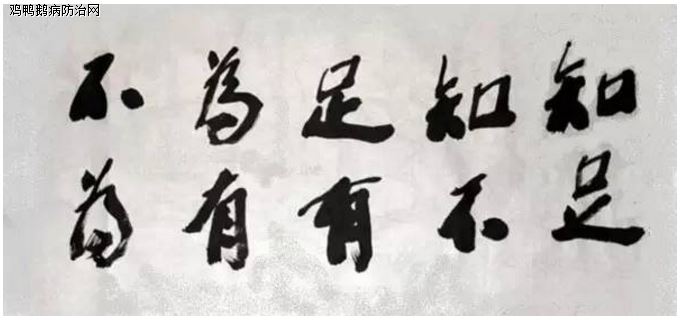 鸡鸭鹅病防治网
知足
知不
足有
為有
不為